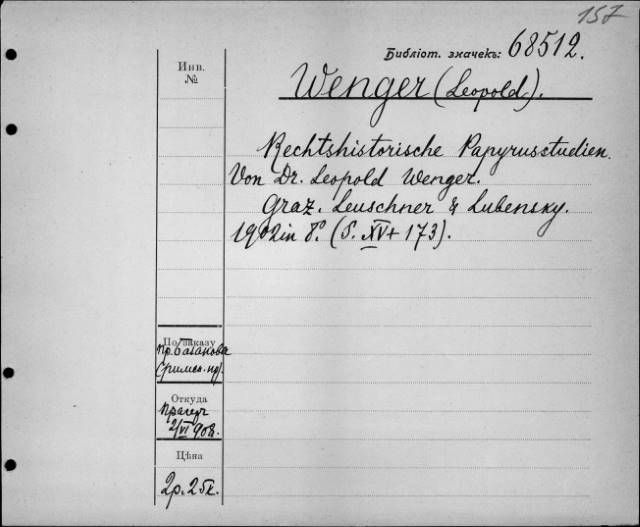 157
Библіот. значекъ: 68512.
Инв.
№
Wenger (Leopold).
Rechtshistorische Papyrusstudien.
Von Dr. Leopold Wenger.
Graz. Leuschner & Lubensky.
1902 in 8°. (S. XV + 173).
По заказу
пр.
Откуда
2/VI 908.
Цѣна
2р. 25к.